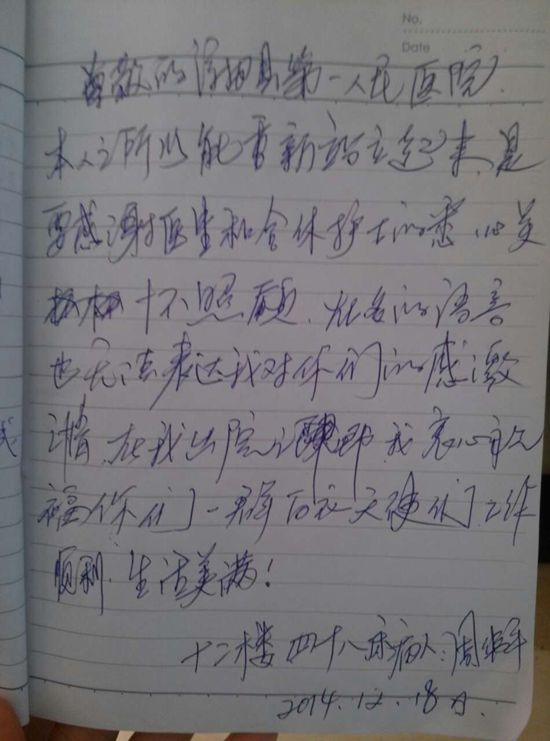 No.
Date
尊敬的 县第一人民医院
本人之所以能重新站立起来,是
要感谢医生和全体护士的悉心关
怀照顾,在多的语言
也无法表达我对你们的感激
之情,在我出院之际 我衷心祝
福你们一群白衣天使们工作
顺利.生活美满!
十二楼四十八床病人:周
2014.12.18日.